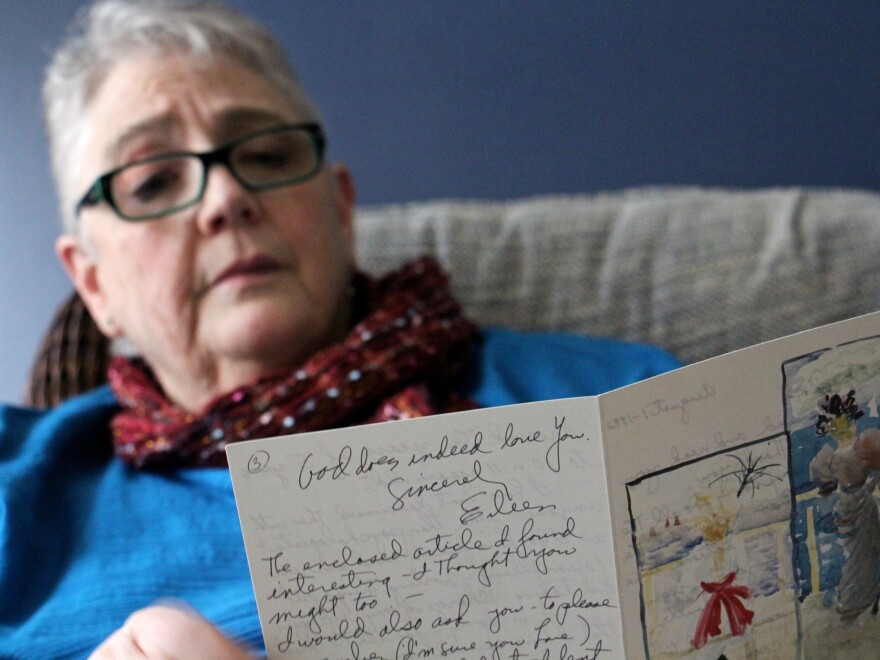 3
God does indeed love You.
Sincerely
Eileen
The enclosed article I found
interesting - I Thought you
might too! -
I would also ask you - to please
(I'm sure you have)